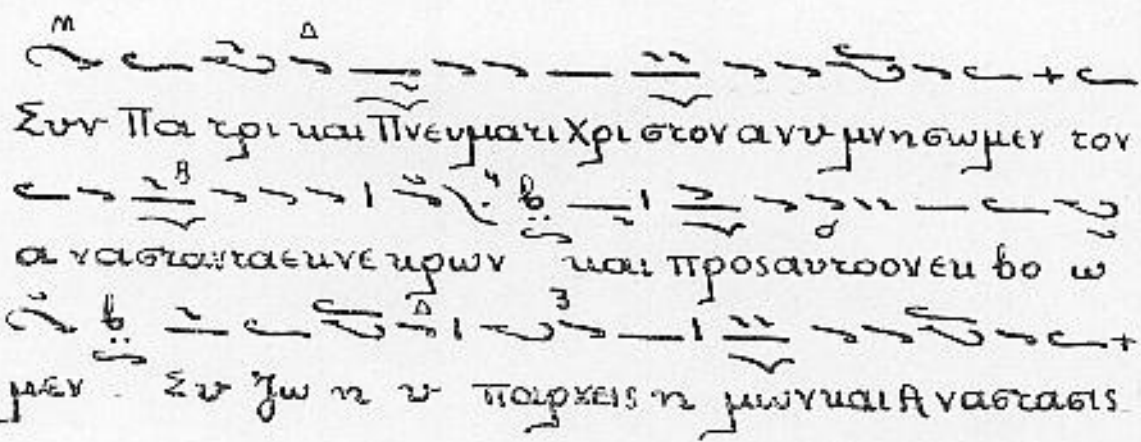 Συν Πα τρι και Πνευματι Χρι στον α νυ μνησωμεν τον
α νασταντα εκ νε κρων και προς αυτοον εκ βο ω
μεν. Συ ζω η υ παρχεις η μων και Α ναστασις